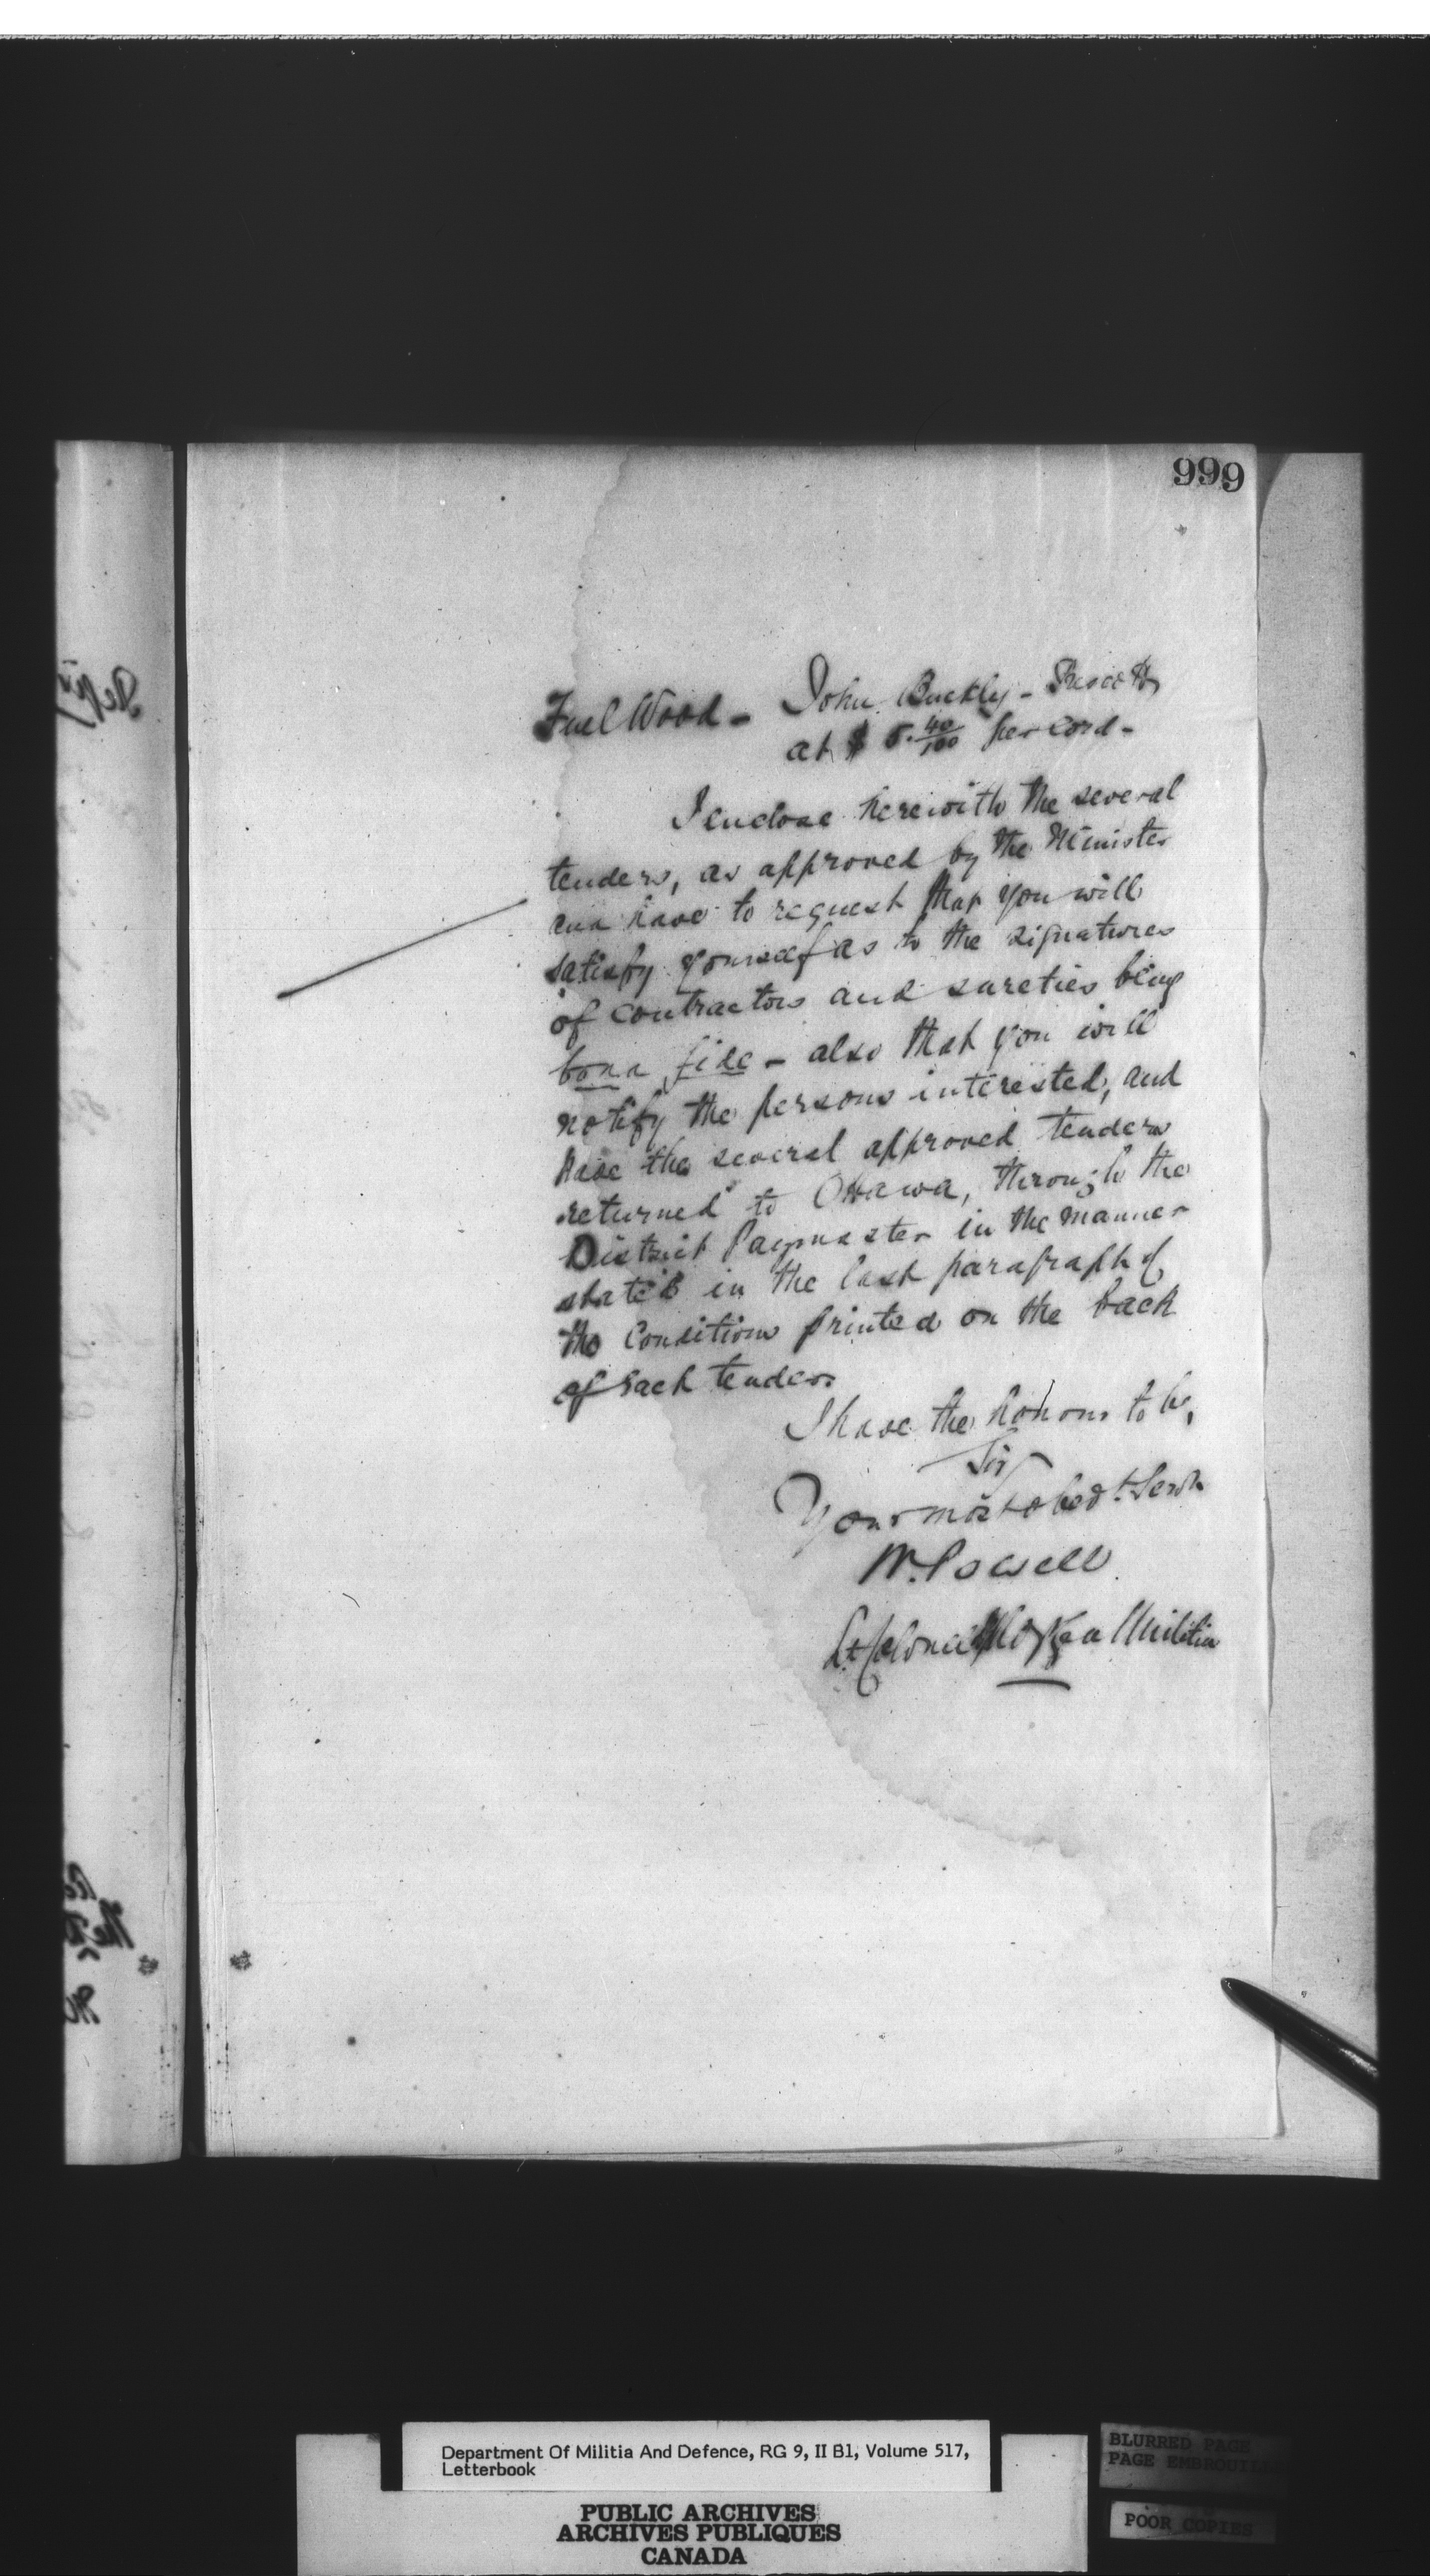 999
Fuel Wood - John Buckly - Prescott
at $ 5.40/100 per Cord -
I enclose herewith the several
tenders, as approved by the Minister
and have to request that you will
satisfy yourself as to the signatures
of contractors and sureties being
bona fide - also that you will
notify the persons interested, and
have the several approved tenders
returned to Ottawa, through the
District Paymaster in the manner
stated in the last paragraph of
the Conditions printed on the back
of each tender.
I have the honour to be,
Sir
Your most obedt. Servt
W. Powell
Lt Colonel Militia
Department Of Militia And Defence, RG 9, II B1, Volume 517,
Letterbook
PUBLIC ARCHIVES
ARCHIVES PUBLIQUES
CANADA
BLURRED PAGE
PAGE EMBROUILL
POOR COPIES